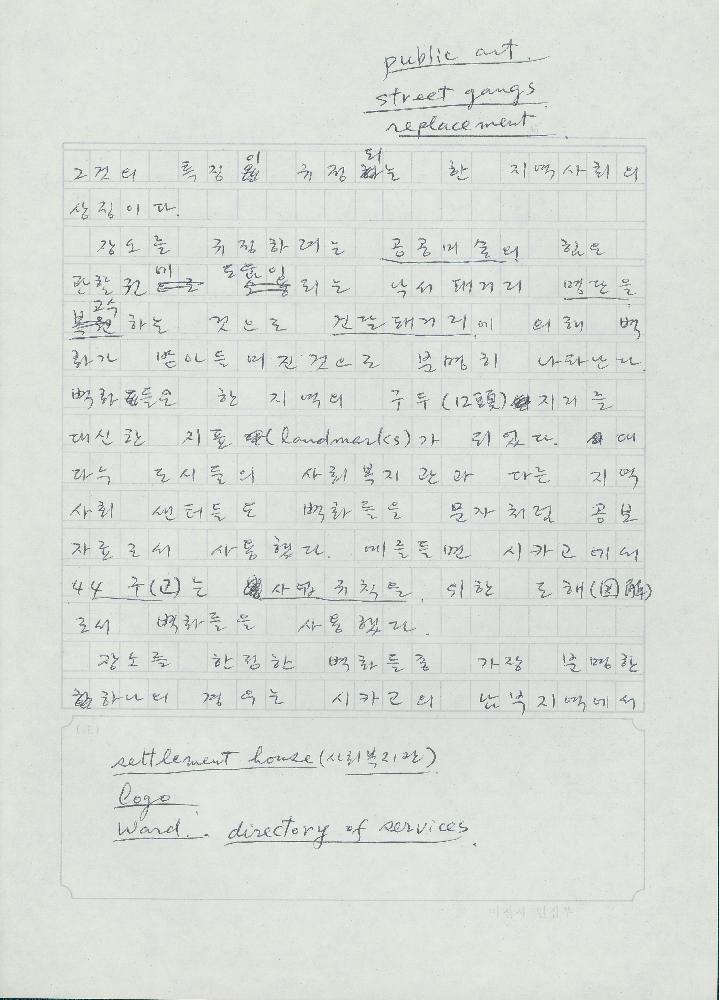 public art
street gangs
replacement
그것의 특징이 규정되는 한 지역사회의
상징이다.
장소를 규정하려는 공공미술의 힘은
관할권에 도움이 되는 낙서 패거리 명단을
고수하는 것으로 건달패거리에 의해 벽
화가 받아들여진 것으로 분명히 나타난다.
벽화들은 한 지역의 구두(口頭) 지리를
대신한 지표(landmarks)가 되었다. 대
다수 도시들의 사회복지관과 다른 지역
사회 센터들도 벽화들을 문자처럼 홍보
자료로서 사용했다. 예를들면 시카고에서
44 구(区)는 사법규칙을 위한 도해(図解)
로서 벽화들을 사용했다.
장소를 한정한 벽화들중 가장 분명한
하나의 경우는 시카고의 남부지역에서
settlement house(사회복지관)
logo
Ward. directory of services.